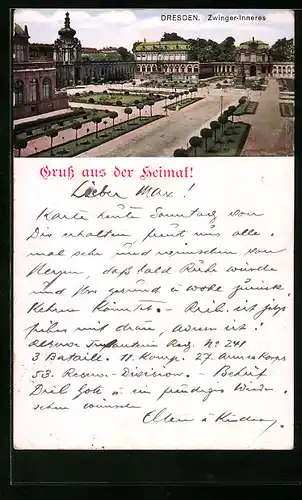 DRESDEN. Zwinger-Inneres
Gruß aus der Heimat!
Lieber Max!
Karte heute Sonntag von
Dir erhalten freut uns alle
mal sehr und wünschen von
Herzen, daß bald Ruhe würde
und Ihr gesund u wohl zurück
Kehren könntet. – ist jetzt
mit dran, ist:
Reserve Infanterie Reg. No 241
3 Bataill. 11. Komp. 27. Armee Korps
53. Reserve-Division. – Behüt
Dich Gott u ein freudiges Wieder
sehen wünschen
Eltern u Kinder.